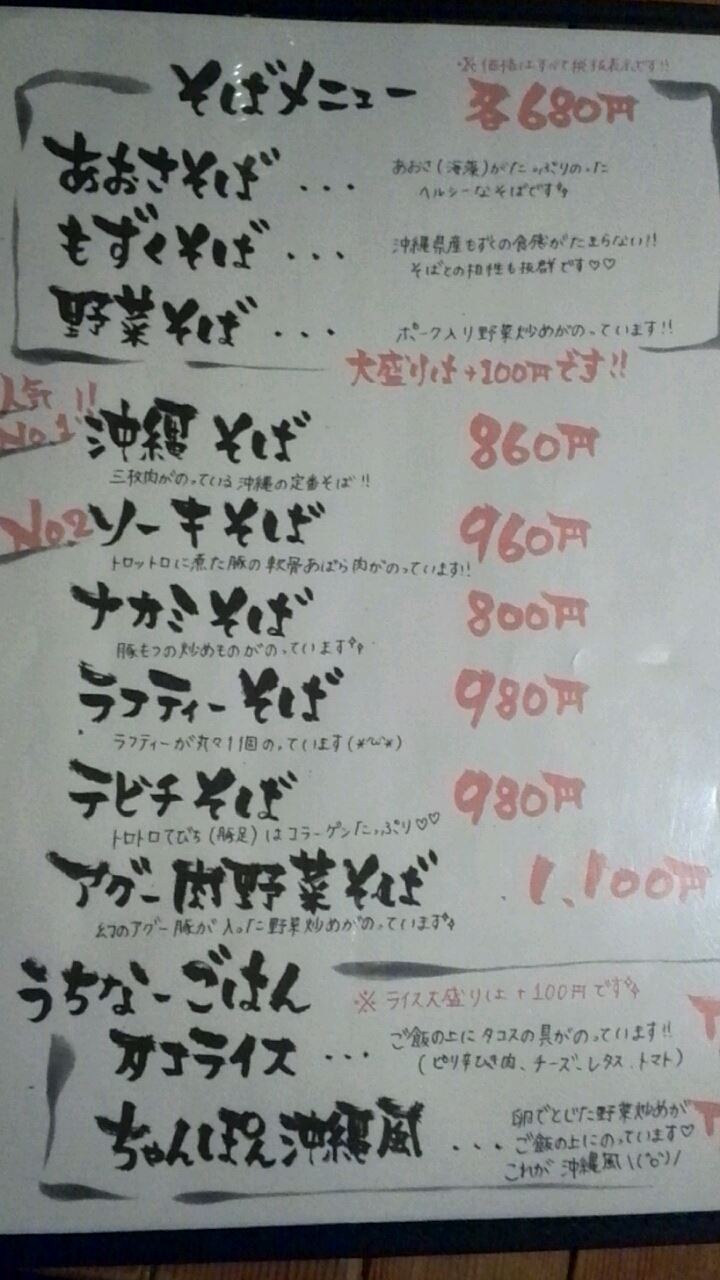 そばメニュー
※価格はすべて税抜表示です!!
各680円
あおさそば ...
あおさ(海藻)がたっぷりのった
ヘルシーなそばです
もずくそば ...
沖縄県産もずくの食感がたまらない!!
そばとの相性も抜群です♡♡
野菜そば ...
ポーク入り野菜炒めがのっています!!
大盛りは+100円です!!
人気!!
No.1
沖縄そば 860円
三枚肉がのっている沖縄の定番そば!!
No.2 ソーキそば 960円
トロットロに煮た豚の軟骨あばら肉がのっています!!
ナカミそば 800円
豚もつの炒めものがのっています
ラフティーそば 980円
ラフティーが丸々1個のっています(*^ω^*)
テビチそば 980円
トロトロてびち(豚足)はコラーゲンたっぷり♡♡
アグー肉野菜そば 1,100円
幻のアグー豚が入った野菜炒めがのっています
うちなーごはん
※ライス大盛りは+100円です
タコライス ...
ご飯の上にタコスの具がのっています!!
(ピリ辛ひき肉、チーズ、レタス、トマト)
ちゃんぽん沖縄風 ...
卵でとじた野菜炒めが
ご飯の上にのっています♡
これが沖縄風\(^o^)/